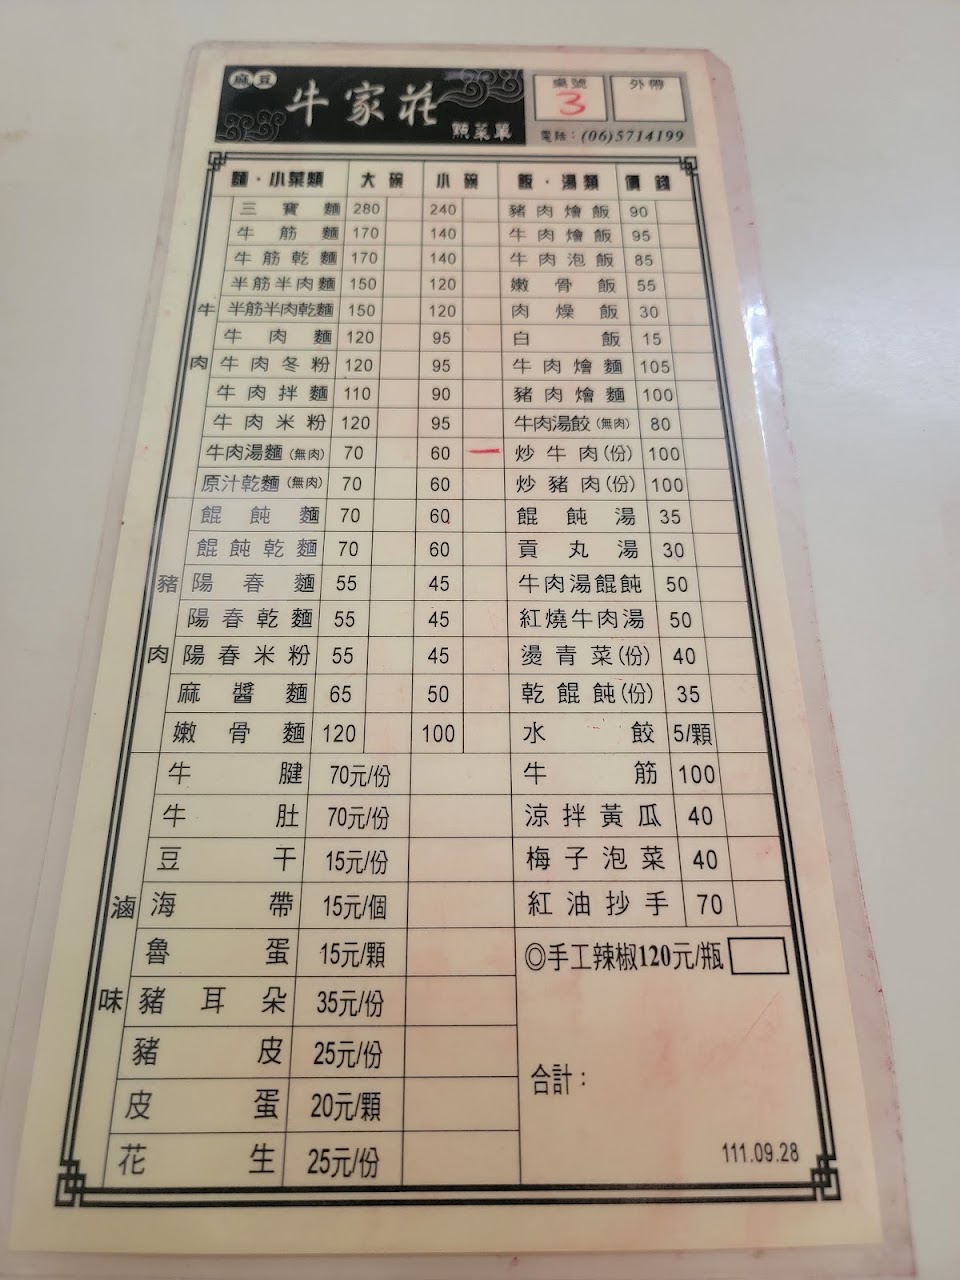 麻豆 牛家莊 點菜單
桌號 3 外帶
電話：(06)5714199
麵・小菜類 大碗 小碗 飯・湯類 價錢
牛肉
三寶麵 280 240 豬肉燴飯 90
牛筋麵 170 140 牛肉燴飯 95
牛筋乾麵 170 140 牛肉泡飯 85
半筋半肉麵 150 120 嫩骨飯 55
半筋半肉乾麵 150 120 肉燥飯 30
牛肉麵 120 95 白飯 15
牛肉冬粉 120 95 牛肉燴麵 105
牛肉拌麵 110 90 豬肉燴麵 100
牛肉米粉 120 95 牛肉湯餃(無肉) 80
牛肉湯麵(無肉) 70 60 一 炒牛肉(份) 100
原汁乾麵(無肉) 70 60 炒豬肉(份) 100
豬肉
餛飩麵 70 60 餛飩湯 35
餛飩乾麵 70 60 貢丸湯 30
陽春麵 55 45 牛肉湯餛飩 50
陽春乾麵 55 45 紅燒牛肉湯 50
陽春米粉 55 45 燙青菜(份) 40
麻醬麵 65 50 乾餛飩(份) 35
嫩骨麵 120 100 水餃 5/顆
滷味
牛腱 70元/份 牛筋 100
牛肚 70元/份 涼拌黃瓜 40
豆干 15元/份 梅子泡菜 40
海帶 15元/個 紅油抄手 70
魯蛋 15元/顆 ◎手工辣椒120元/瓶
豬耳朵 35元/份
豬皮 25元/份
皮蛋 20元/顆
花生 25元/份
合計：
111.09.28